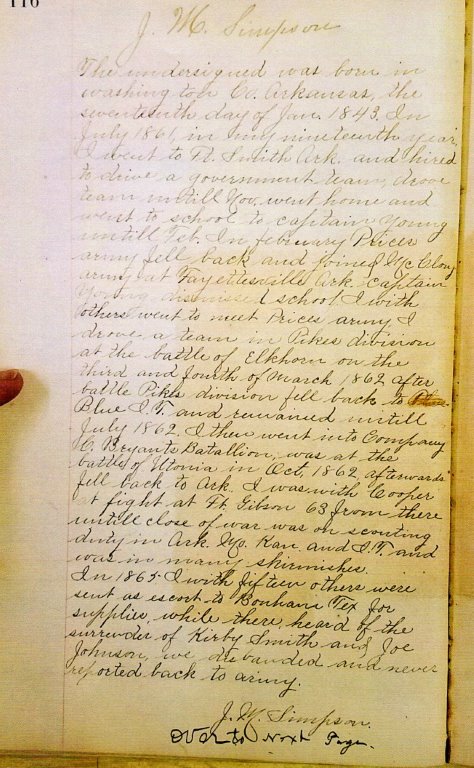 116
J. M. Simpson
The undersigned was born in
washington Co. Arkansas, the
seventeenth day of Jan. 1843. In
July 1861, in my nineteenth year,
I went to Ft. Smith Ark. and hired
to drive a government team, drove
team untill Nov. went home and
went to school to captain Young
untill Feb. In february Prices
army fell back and joined
army at Fayettesville Ark. captain
Young dismissed school. I with
others went to meet Prices army, I
drove a team in Pikes division
at the battle of Elkhorn on the
third and fourth of March 1862 After
battle Pikes division fell back to
Blue I. T. and remained untill
July 1862. I then went into Company
C. Bryants Batallion, was at the
battle of Utonia in Oct, 1862, afterwards
fell back to Ark. I was with Cooper
at fight at Ft. Gibson 63 from there
untill close of war was on scouting
duty in Ark. Mo. Kan. and I. T. and
was in many skirmishes.
In 1865 I with fifteen others were
sent as escort to Bonham Tex for
supplies, while there heard of the
surrender of Kirby Smith and Joe
Johnson, we disbanded and never
reported back to army.
J. M. Simpson.
Over to Next Page.